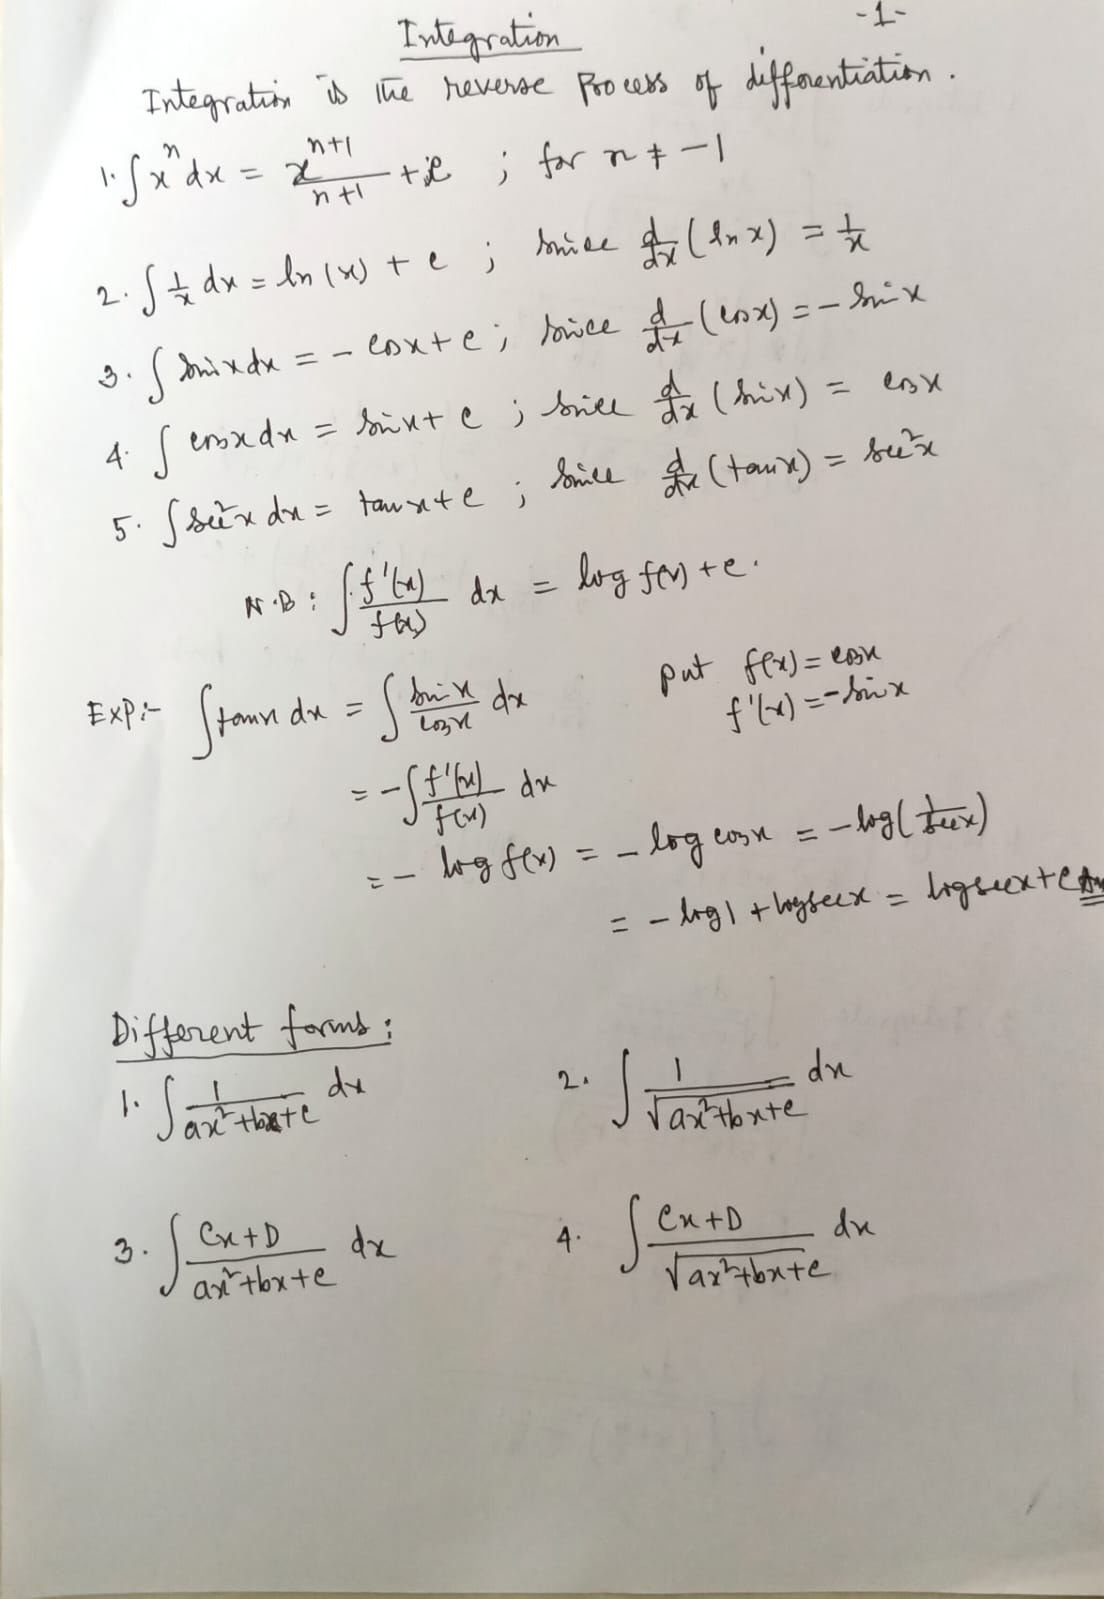 Integration
-1-
Integration is the reverse Process of differentiation.
1. ∫ xⁿ dx = xⁿ⁺¹/(n+1) + c ; for n ≠ -1
2. ∫ 1/x dx = ln (x) + c ; since d/dx (ln x) = 1/x
3. ∫ sinx dx = - cosx + c ; since d/dx (cosx) = - sinx
4. ∫ cosx dx = sinx + c ; since d/dx (sinx) = cosx
5. ∫ sec²x dx = tanx + c ; since d/dx (tanx) = sec²x
N.B : ∫ f'(x)/f(x) dx = log f(x) + c.
EXP:- ∫ tanx dx = ∫ sinx/cosx dx
put f(x) = cosx
f'(x) = -sinx
= -∫ f'(x)/f(x) dx
= - log f(x) = - log cosx = - log(1/secx)
= - log1 + logsecx = logsecx + c Ans
Different forms :
1. ∫ 1/(ax²+bx+c) dx
2. ∫ 1/√(ax²+bx+c) dx
3. ∫ (Cx+D)/(ax²+bx+c) dx
4. ∫ (Cx+D)/√(ax²+bx+c) dx